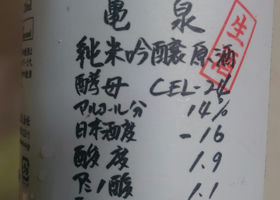 亀泉
純米吟醸原酒
生酒
酵母 CEL-24
アルコール分 14%
日本酒度 -16
酸度 1.9
アミノ酸 1.1